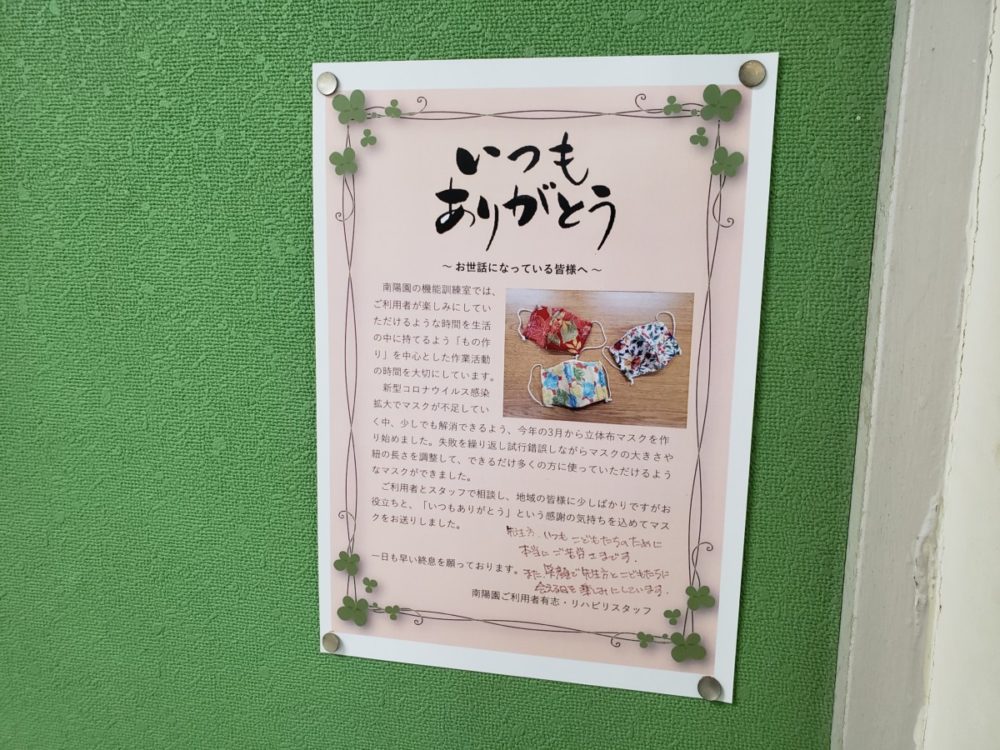 いつも
ありがとう
～ お世話になっている皆様へ ～
南陽園の機能訓練室では、
ご利用者が楽しみにしてい
ただけるような時間を生活
の中に持てるよう「もの作
り」を中心とした作業活動
の時間を大切にしています。
新型コロナウイルス感染
拡大でマスクが不足してい
く中、少しでも解消できるよう、今年の3月から立体布マスクを作
り始めました。失敗を繰り返し試行錯誤しながらマスクの大きさや
紐の長さを調整して、できるだけ多くの方に使っていただけるよう
なマスクができました。
ご利用者とスタッフで相談し、地域の皆様に少しばかりですがお
役立ちと、「いつもありがとう」という感謝の気持ちを込めてマス
クをお送りしました。
先生方、いつも こどもたちのために
本当に ご苦労さまです.
一日も早い終息を願っております。
また、笑顔で先生方とこどもたちに
会える日を楽しみにしています.
南陽園ご利用者有志・リハビリスタッフ